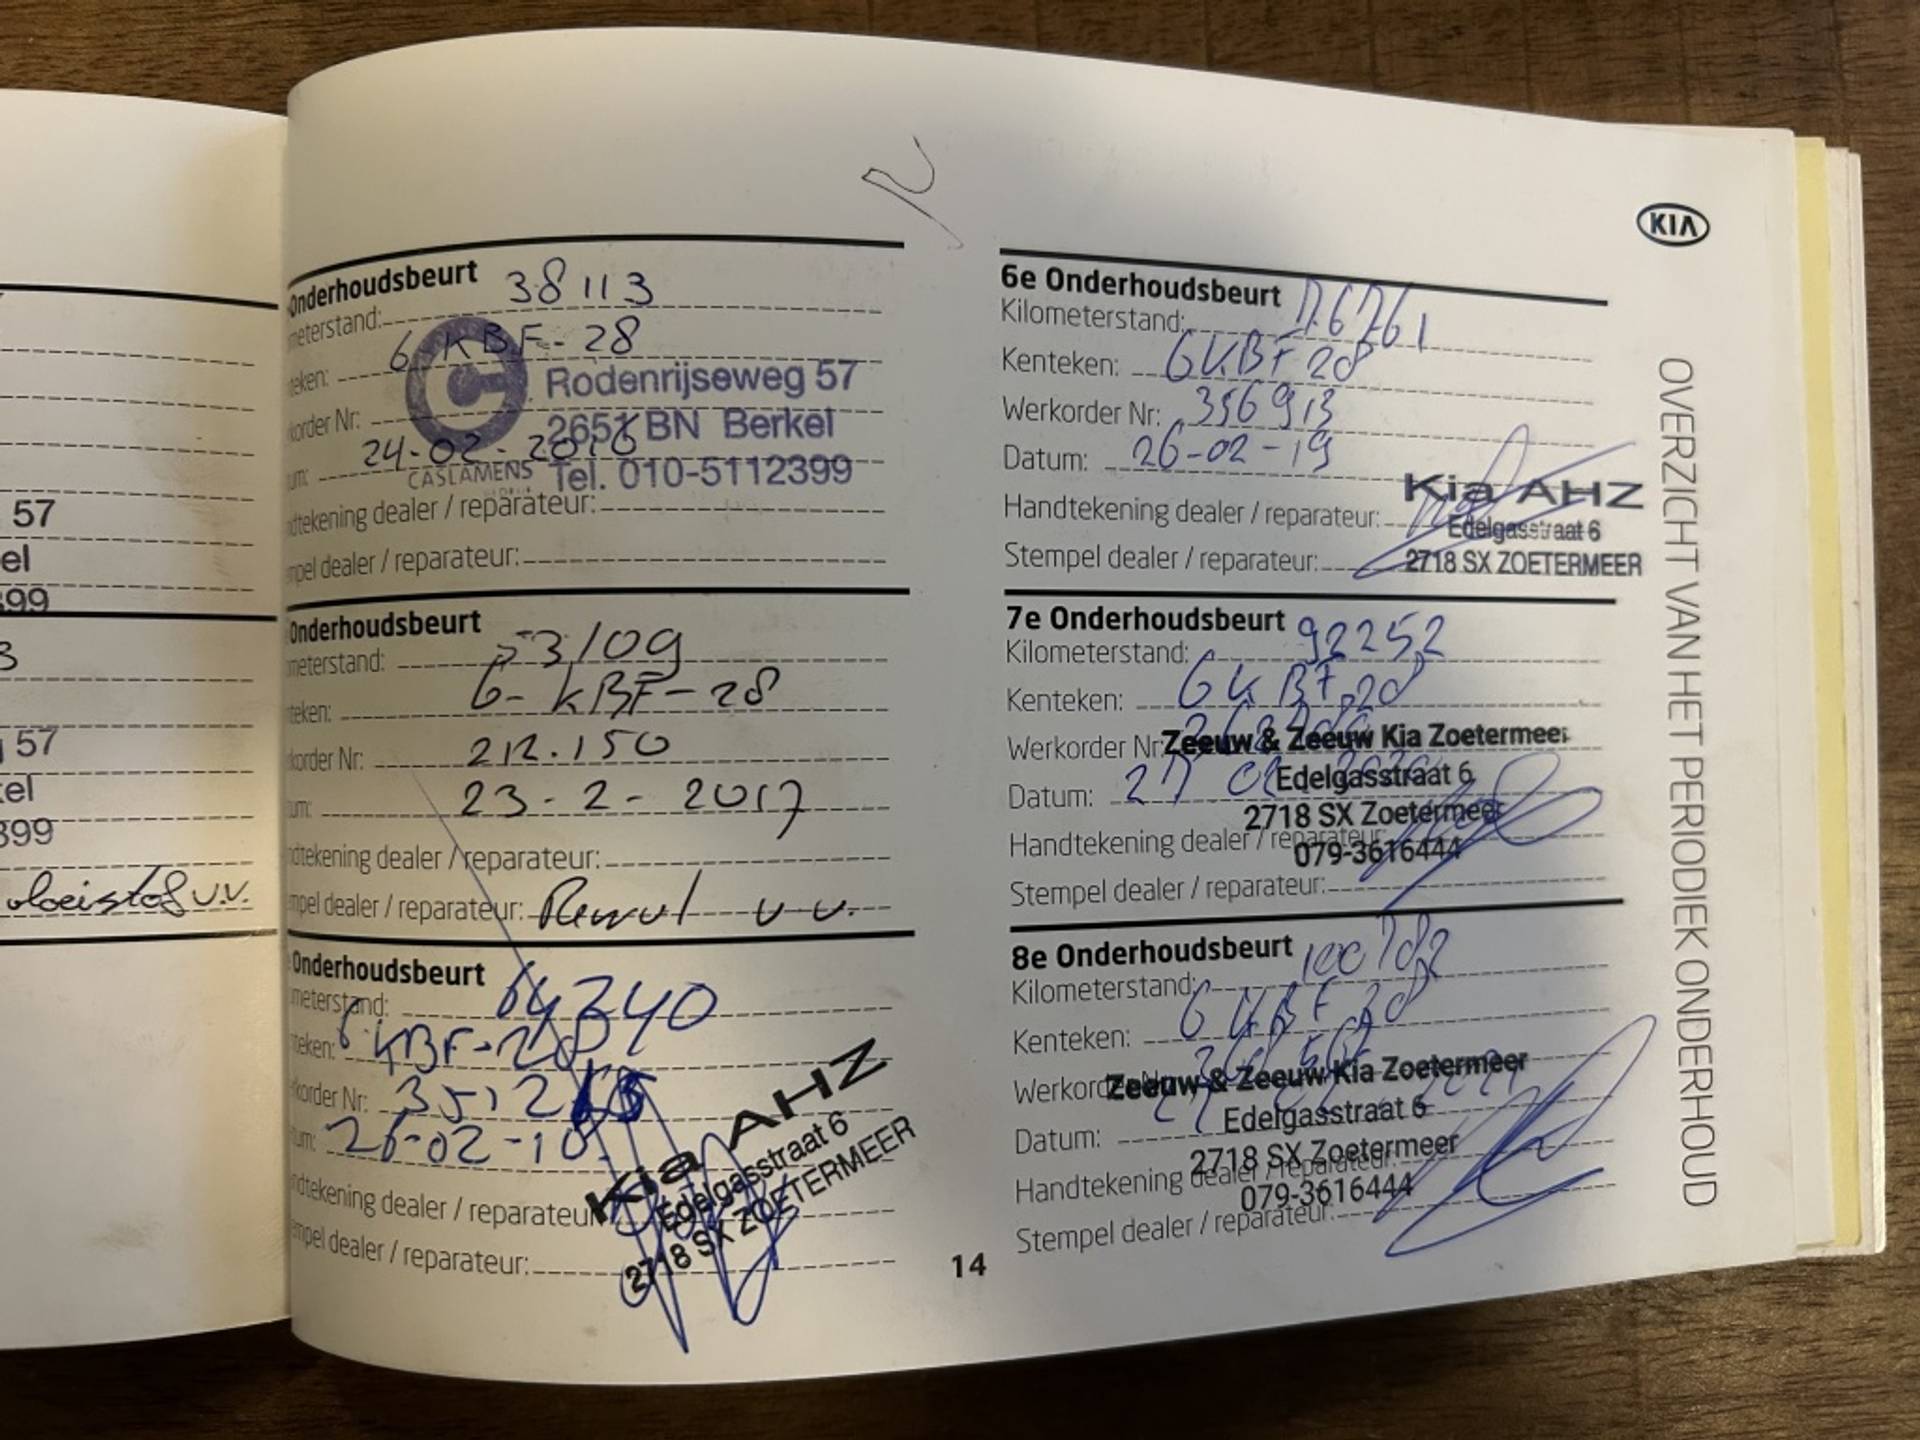 57
el
399
3
57
el
399
vloeistof v.v.
Onderhoudsbeurt
meterstand: 38113
teken: 6-KBF-28
korder Nr:
um: 24-02-2016
Rodenrijseweg 57
2651 BN Berkel
CASLAMENS Tel. 010-5112399
dtekening dealer / reparateur:
mpel dealer / reparateur:
Onderhoudsbeurt
meterstand: 53109
teken: 6-KBF-28
korder Nr: 212.150
um: 23-2-2017
dtekening dealer / reparateur:
mpel dealer / reparateur: v.v.
Onderhoudsbeurt
meterstand: 64240
teken: 6KBF-28
korder Nr:
um: 26-02-18
dtekening dealer / reparateur:
mpel dealer / reparateur:
Kia AHZ
Edelgasstraat 6
2718 SX ZOETERMEER
14
KIA
6e Onderhoudsbeurt
Kilometerstand: 76761
Kenteken: 6KBF28
Werkorder Nr: 356913
Datum: 26-02-19
Handtekening dealer / reparateur:
Stempel dealer / reparateur:
Kia AHZ
Edelgasstraat 6
2718 SX ZOETERMEER
7e Onderhoudsbeurt
Kilometerstand: 92252
Kenteken: 6KBF28
Werkorder Nr:
Datum: 27 02 2020
Handtekening dealer / reparateur:
Stempel dealer / reparateur:
Zeeuw & Zeeuw Kia Zoetermeer
Edelgasstraat 6
2718 SX Zoetermeer
079-3616444
8e Onderhoudsbeurt
Kilometerstand: 100782
Kenteken: 6KBF28
Werkorder Nr:
Datum:
Handtekening dealer / reparateur:
Stempel dealer / reparateur:
Zeeuw & Zeeuw Kia Zoetermeer
Edelgasstraat 6
2718 SX Zoetermeer
079-3616444
OVERZICHT VAN HET PERIODIEK ONDERHOUD